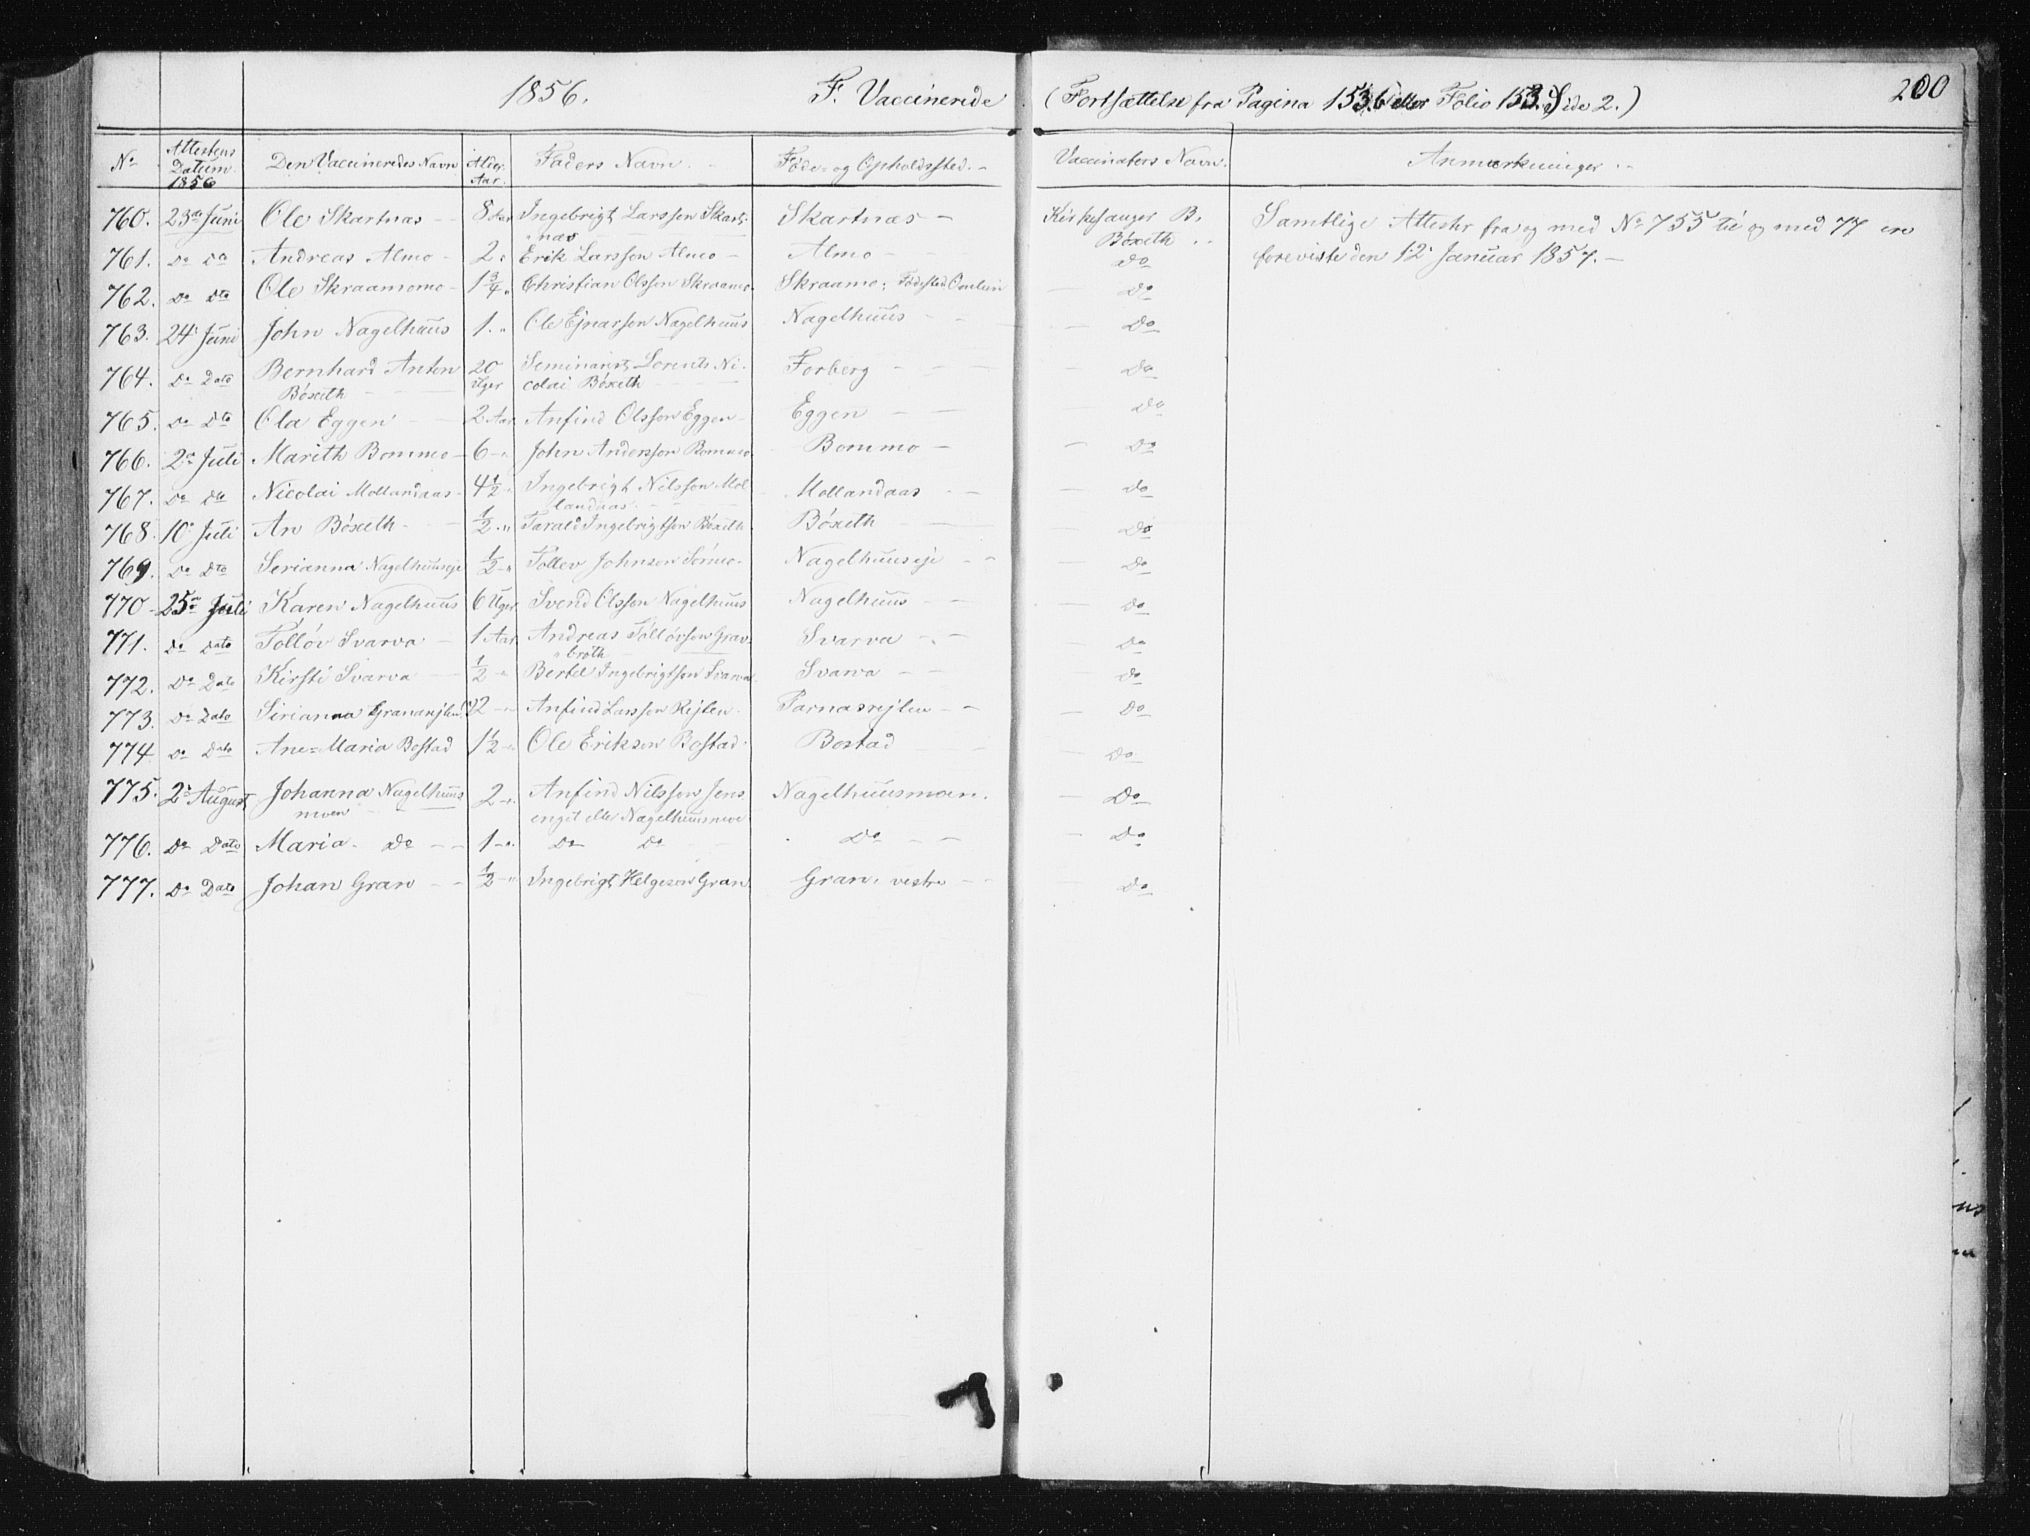 1856. F. Vaccinerede (Fortsættelse fra Pagina 153.b eller Folio 153. Side 2.) 200
No Attestens Datum 1856 Den Vaccineredes Navn Alder. Aar. Faders Navn. Føde- og Opholdssted. Vaccinators Navn. Anmærkninger.
760. 23de Juni Ole Skartnæs 8 Aar Ingebrigt Larsson Skart- Skartnæs Kirkesanger B. Samtlige Attester fra og med No 755 til og med 77 ere
næs Bøxeth
761. Do Do Andreas Almo 2 " Erik Larsson Almo Almo Do foreviste den 12. Januar 1857.
762. Do Dto Ole Skraamomo 1 3/4 " Christian Olsson Skraamo Skraamo, Fødested: Do
763. 24 Juni John Nagelhuus 1. " Ole Ejnarson Nagelhuus Nagelhuus Do
764. Do Dato Bernhard Anton 20 Seminarist Lorents Ni- Forberg Do
Bøxeth Uger colai Bøxeth
765. Do Dto Ola Eggen 2 Aar Anfind Olsson Eggen Eggen Do
766. 2. Juli Marith Bommo 6 " John Andersson Bommo Bommo Do
767. Do Dto Nicolai Mollandaas 4 1/2 " Ingebrigt Nilsson Mol Mollandaas Do
landaas
768. 10. Juli An Bøxeth 1/2 " Tarald Ingebrigtson Bøxeth Bøxeth Do
769. Do Dto Serianna Nagelhuuseje 1/2 " Tollev Johnson Nagelhuuseje Do
770 25. Juli Karen Nagelhuus 6 Uger Svend Olsson Nagelhuus Nagelhuus Do
771. Do Dato Tolløv Svarva 1 Aar Andreas Tolløvson Grav- Svarva Do
" brøth
772. Do Dato Kirsti Svarva 1/2 " Bertel Ingebrigtson Svarva Svarva Do
773. Do Dato Sirianna 2 " Anfind Larsson Rejten Parnasrejten Do
774 Do Dato Ane=Maria Bostad 1 1/2 " Ole Erikson Bostad Bostad Do
775. 2. August Johanna Nagelhuus 2 " Anfind Nilsson Jens Nagelhuusmoen. Do
moen enget eller Nagelhuusmoe
776. Do Dato Maria Do 1 " Do Do Do Do
777. Do Dato Johan Gran 1/2 " Ingebrigt Helgeson Gran Gran, vestre Do